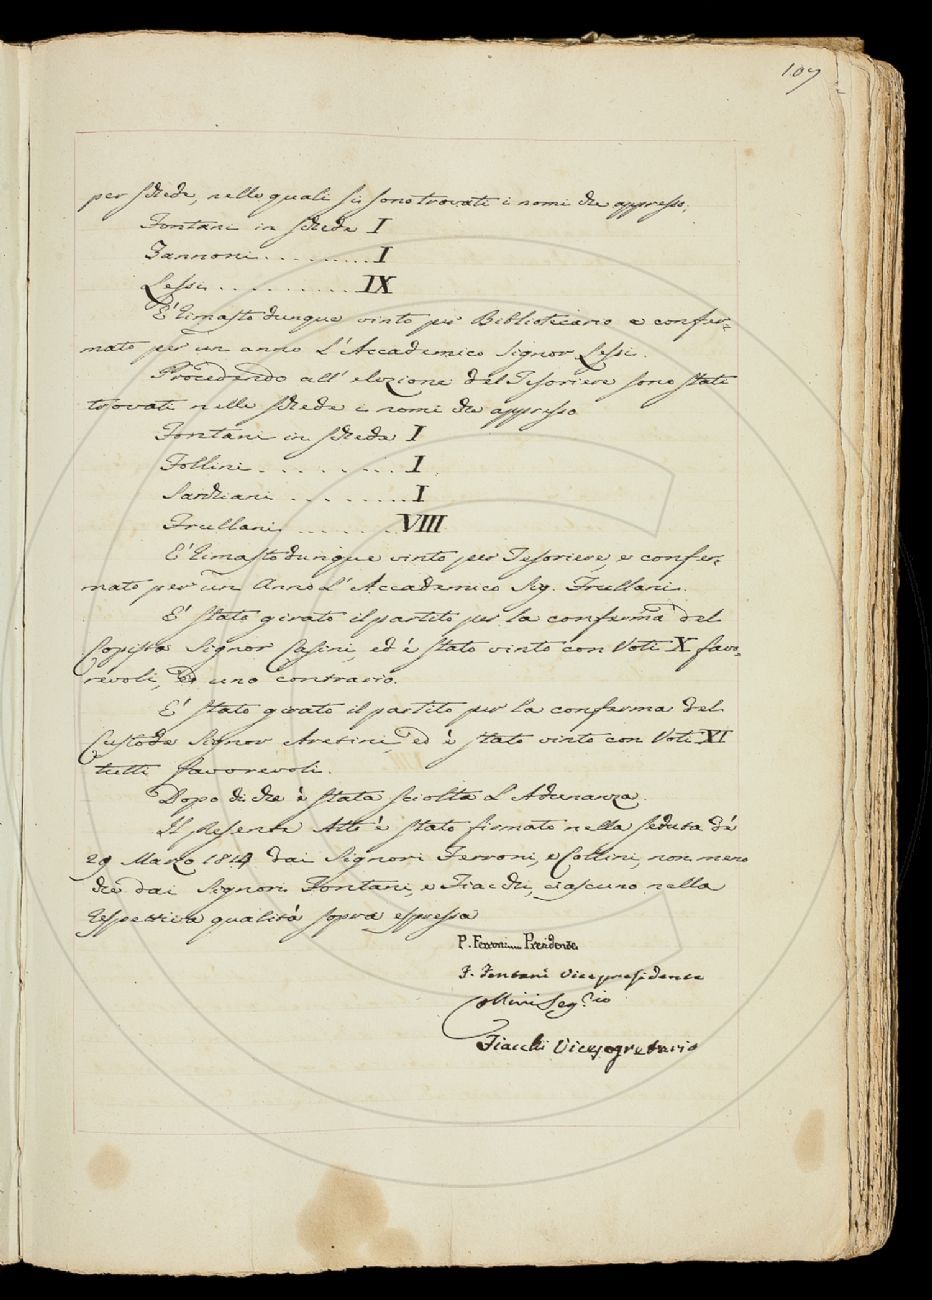 107
per schede, nelle quali si sono trovati i nomi che appresso,
Fontani in scheda I
Zannoni . . . . . . . . . I
Lessi . . . . . . . . . . . IX
E' rimasto dunque vinto per Bibliotecario e confer=
mato per un anno L'Accademico Signor Lessi.
Procedendo all' elezione del Tesoriere sono stati
trovati nelle schede i nomi che appresso
Fontani in scheda I
Follini . . . . . . . . . I
Sarchiani . . . . . . . . I
Frullani . . . . . . . VIII
E' rimasto dunque vinto per Tesoriere, e confer=
mato per un Anno L' Accademico Sig. Frullani.
E' stato girato il partito per la conferma del
Copista Signor Casini, ed è stato vinto con Voti X favo=
revoli, ed uno contrario.
E' stato girato il partito per la conferma del
Custode Signor Aretini ed è stato vinto con Voti XI
tutti favorevoli.
Dopo di che è stata sciolta L'Adunanza.
Il presente Atto è stato firmato nella seduta de'
29 Marzo 1814 dai Signori Ferroni, e Collini, non meno
che dai Signori Fontani, e Fiacchi, ciascuno nella
respettiva qualità sopra espressa
P. Ferroni Presidente
F. Fontani Vicepresidente
Collini Seg.rio
Fiacchi Vicesegretario